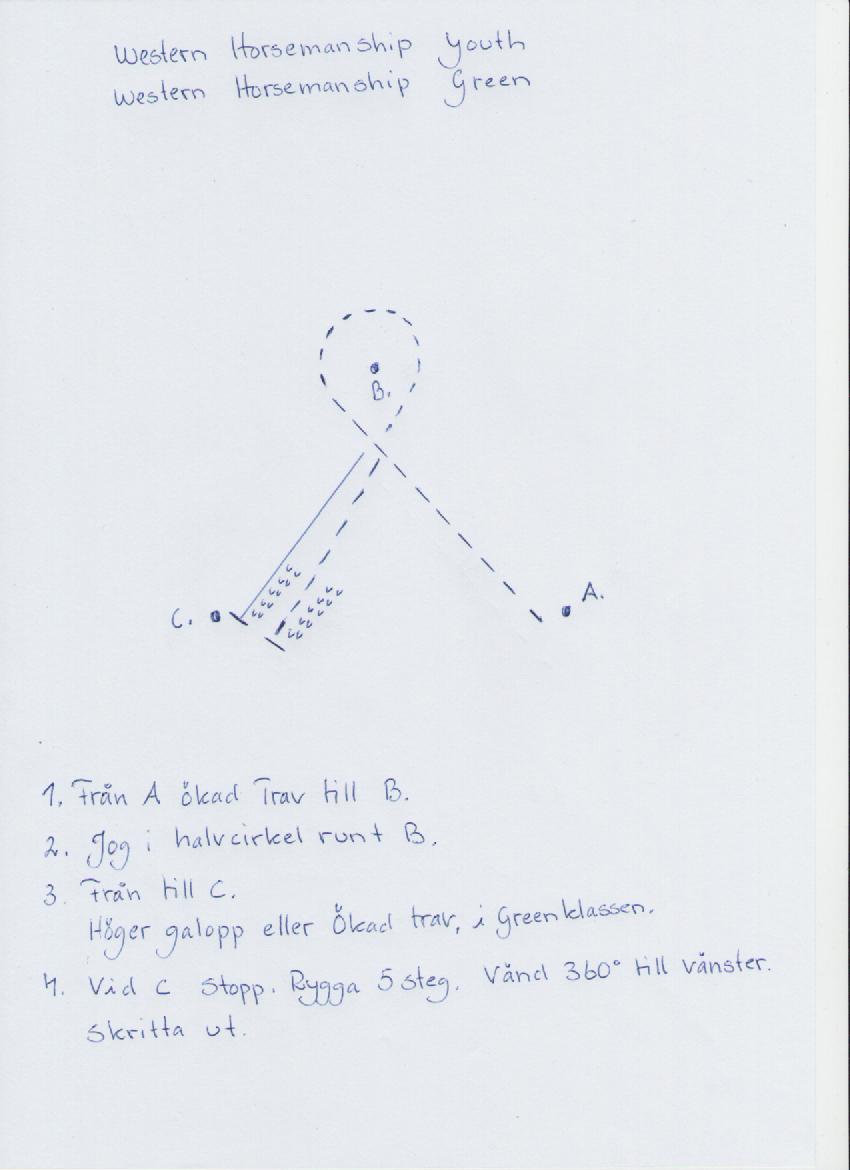 Western Horsemanship Youth
Western Horsemanship Green
B.
A.
C.
1. Från A ökad Trav till B.
2. Jog i halvcirkel runt B.
3. Från till C.
Höger galopp eller Ökad trav, i Greenklassen.
4. Vid C Stopp. Rygga 5 steg. Vänd 360° till vänster.
Skritta ut.